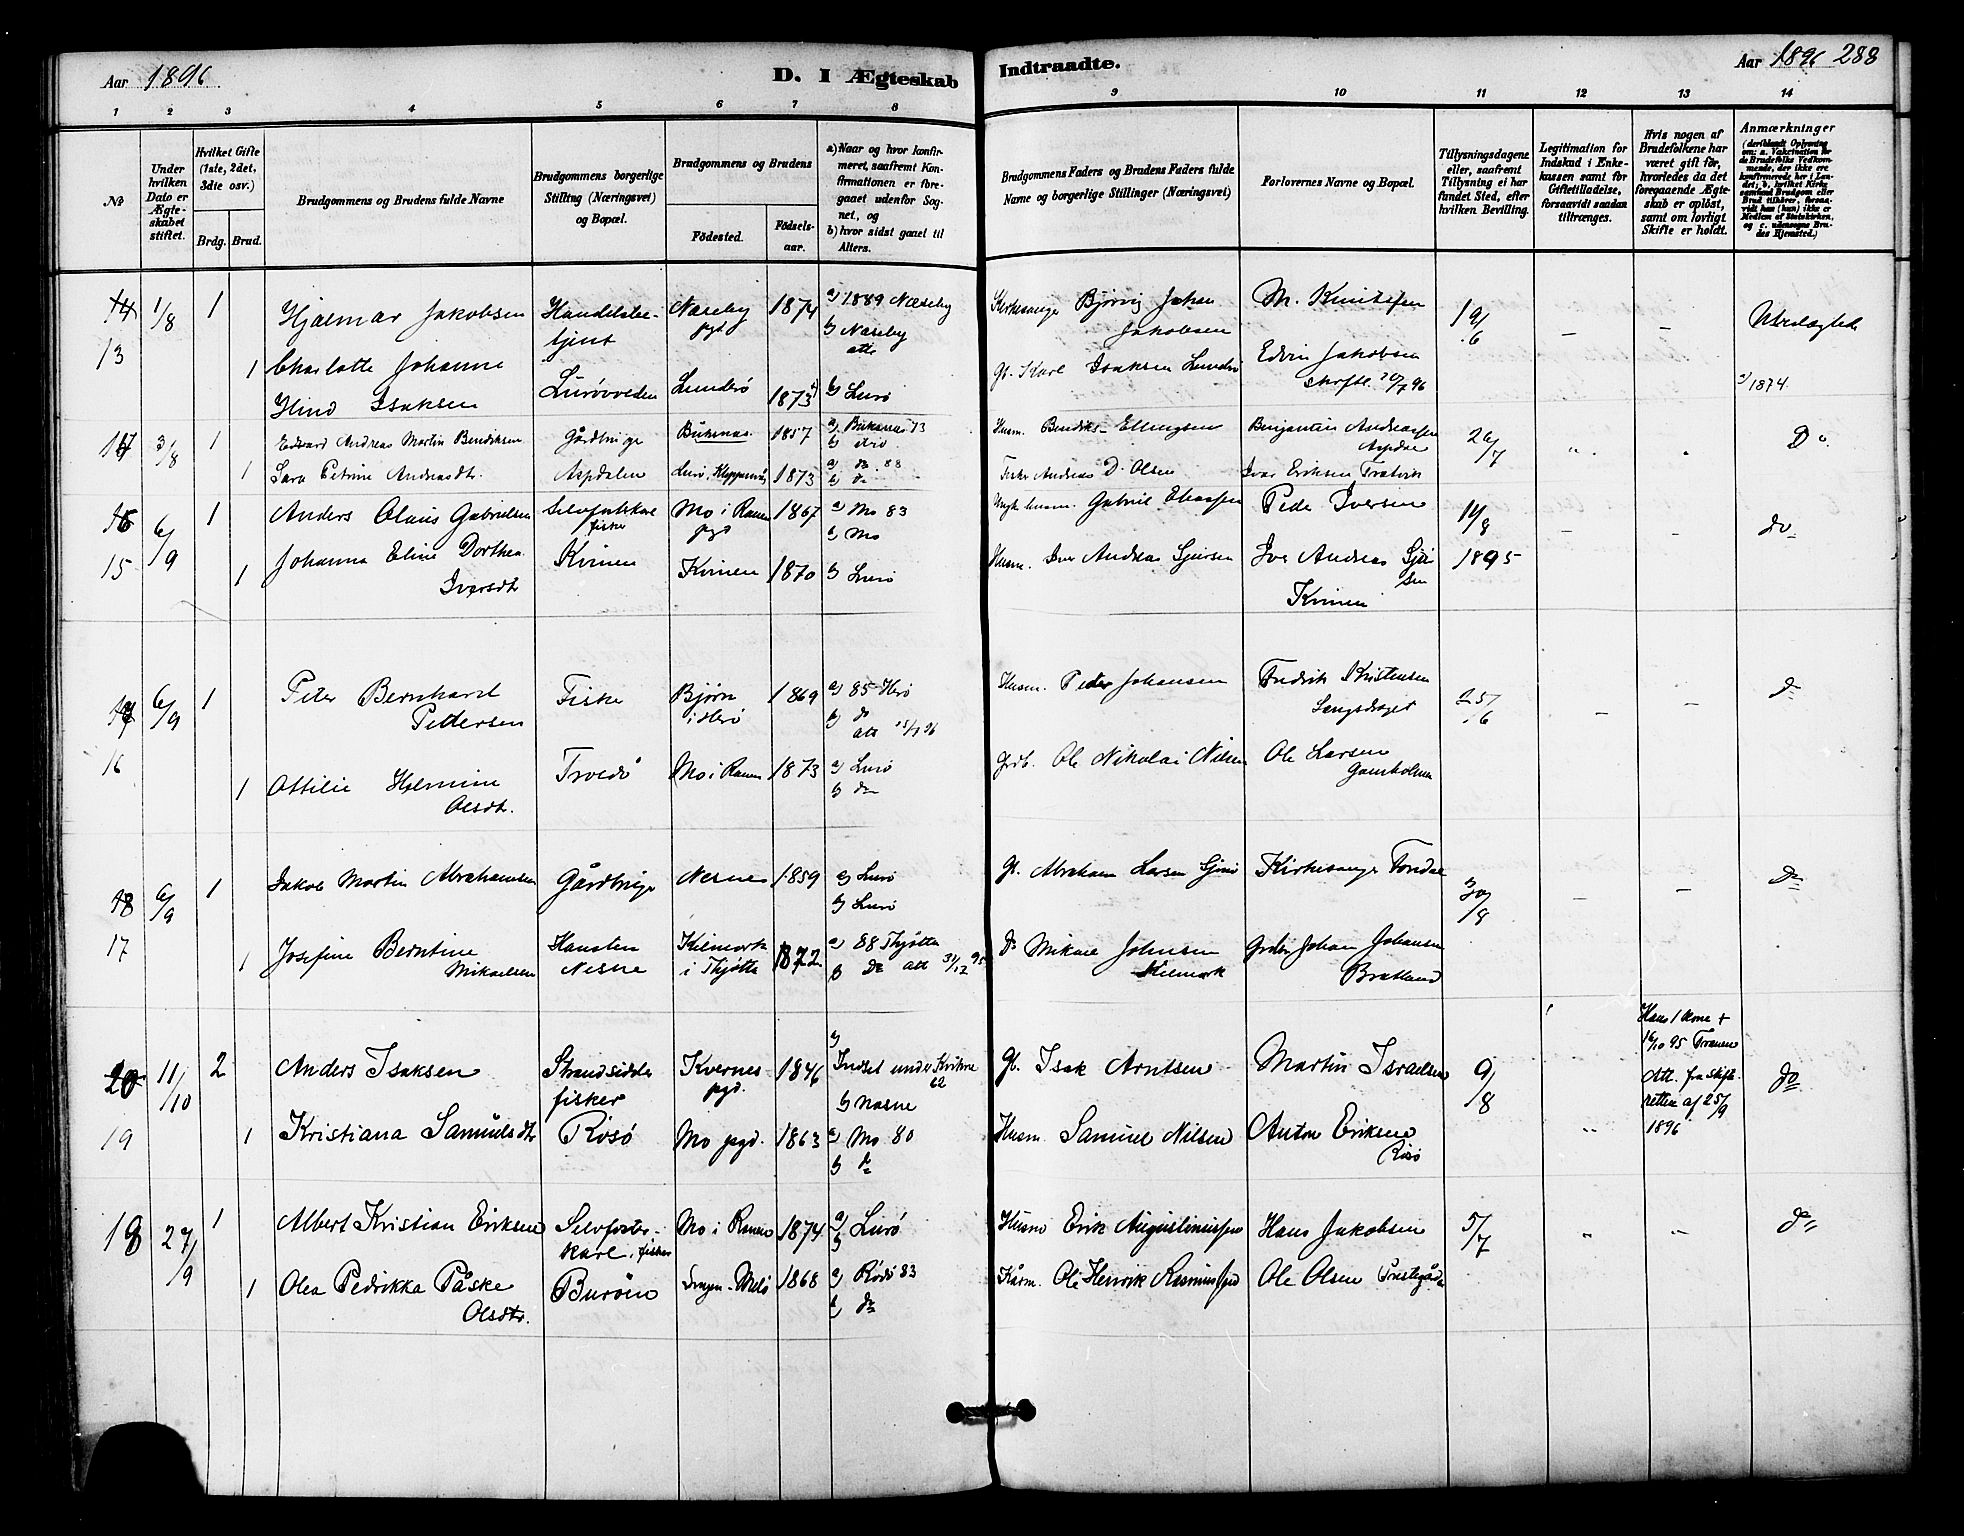 Aar 1896.
D. I Ægteskab
Indtraadte.
Aar 1896 288
1 2 3 4 5 6 7 8
9 10 11 12 13 14
No
Under hvilken Dato er Ægteskabet stiftet.
Hvilket Gifte (1ste, 2det, 3die osv.)
Brdg. Brud.
Brudgommens og Brudens fulde Navne
Brudgommens borgerlige Stilling (Næringsvei) og Bopæl.
Brudgommens og Brudens
Födested. Födselsaar.
a) Naar og hvor konfirmeret, saafremt Konfirmationen er foregaaet udenfor Sognet, og
b) hvor sidst gaaet til Alters.
Brudgommens Faders og Brudens Faders fulde Navne og borgerlige Stillinger (Næringsvei)
Forlovernes Navne og Bopæl.
Tillysningsdagene eller, saafremt Tillysning ei har fundet Sted, efter hvilken Bevilling.
Legitimation for Indskud i Enkekassen samt for Giftetilladelse, forsaavidt saadan tiltrænges.
Hvis nogen af Brudefolkene har været gift för, hvorledes da det foregaaende Ægteskab er oplöst, samt om lovligt Skifte er holdt.
Anmærkninger (deriblandt Oplysning om: a. Vakcination for de Brudefolks Vedkommende, der ikke ere konfirmerede her i Landet; b. hvilket Kirkesamfund Brudgom eller Brud tilhører, forsaavidt han (hun) ikke er Medlem af Statskirken, og c. udensogns Brudes Hjemsted.)
14 1/8 1 Hjalmar Jakobsen Handelsbetjent Næseby pgd 1874 a) 1889 Næseby b) Næseby att. Kirkesanger Bjørvig Johan Jakobsen M. Knutssen 19/6 – –
13 1 Charlotte Johanne Hind Isaksen Lurøvveden Lunderø 1873 b) Lurø Gl. Karl Isaksen Lunderø Edvin Jakobsen skriftl. 20/7 96 1874.
3/8 1 Edvard Andreas Martin Bendiksen Gårdbruger Buksnes 1857 a) Buksnes 73 Husm. Bendiks Ellingsen Benjamin Andreassen 26/7 Do
1 Sara Petrine Andreasdt. Aspdalen Lurø, 1873 a) do. 88 b) do Fisker Andreas D. Olsen Ivar Eriksen
6/9 1 Anders Olaus Gabrielsen fisker Mo i Ranen pgd 1867 a) Mo 83 b) Mo husm. Gabriel 	Peder Iversen 14/8 – – do
15 1 Johanna Eline Dorthea Iversdt Kvinen Kvinen 1870 b) Lurø Husm. Iver Andreas Sjursen Iver Andreas Sjursen Kvinen 1895
6/9 1 Peter Bernhard Pettersen Fisker Bjørn i Herø 1869 a) 85 Herø b) do att Husm. Peder Johansen Fredrik Kristensen Langsdraget 25/6 – – do
16 1 Ottilie Helmine Olsdt. Troedø Mo i Ranen 1873 a) Lurø b) do Grdb. Ole Nikolai Nilsen Ole Larsen
18 6/9 1 Jakob Martin Abrahamsen Gårdbruger Nesne 1859 a) Lurø b) Lurø Gl. Abraham Larsen Kirkesanger Tondal 30/8 – – do
17 1 Josefine Berntine Mikaelsen Hansten Nesne i Thjøtta 1872 a) 88 Thjøtta b) do att 31/12 95 do Mikael Johnsen Grdbr. Johan Johansen Bratland
20 11/10 2 Anders Isaksen Strandsidder fisker Kvernes pgd. 1846 a) Indset under Kvikne 62 b) Nesne Gl. Isak Arntsen Martin Israelsen 9/8 Hans 1 kone + 16/10 95 Trænen Att. fra skifteretten af 25/9 1896 do
19 1 Kristiana Samuelsdtr Rosø Mo pgd. 1863 a) Mo 80 b) do Husm. Samuel Nilsen Anton Eriksen Rosø
18 27/9 1 Albert Kristian Eriksen Selvfosterkarl, fisker Mo i Ranen 1874 a) b) Lurø Husm Erik Augustinussen Hans Jakobsen 5/7 – – do
1 Olea Pedrikka Påske Olsdtr. Burøen Melø 1868 a) Rødø 83 b) do Kårm. Ole Henrik Rasmussen Ole Olsen Prestegården